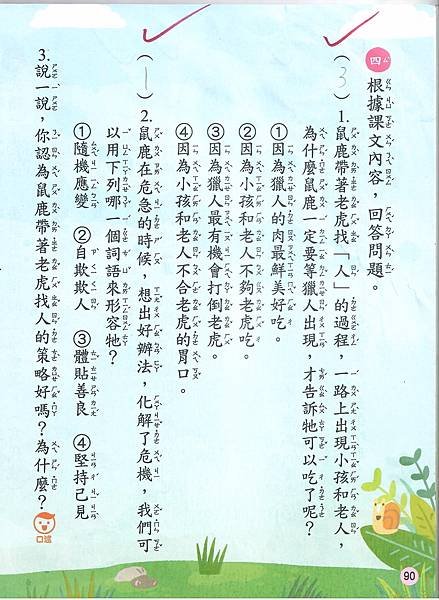 四 根據課文內容，回答問題。
（3）1.鼠鹿帶著老虎找「人」的過程，一路上出現小孩和老人，
為什麼鼠鹿一定要等獵人出現，才告訴牠可以吃了呢？
①因為獵人的肉最鮮美好吃。
②因為小孩和老人不夠老虎吃。
③因為獵人最有機會打倒老虎。
④因為小孩和老人不合老虎的胃口。
（1）2.鼠鹿在危急的時候，想出好辦法，化解了危機，我們可
以用下列哪一個詞語來形容牠？
①隨機應變 ②自欺欺人 ③體貼善良 ④堅持己見
3.說一說，你認為鼠鹿帶著老虎找人的策略好嗎？為什麼？
口述
90